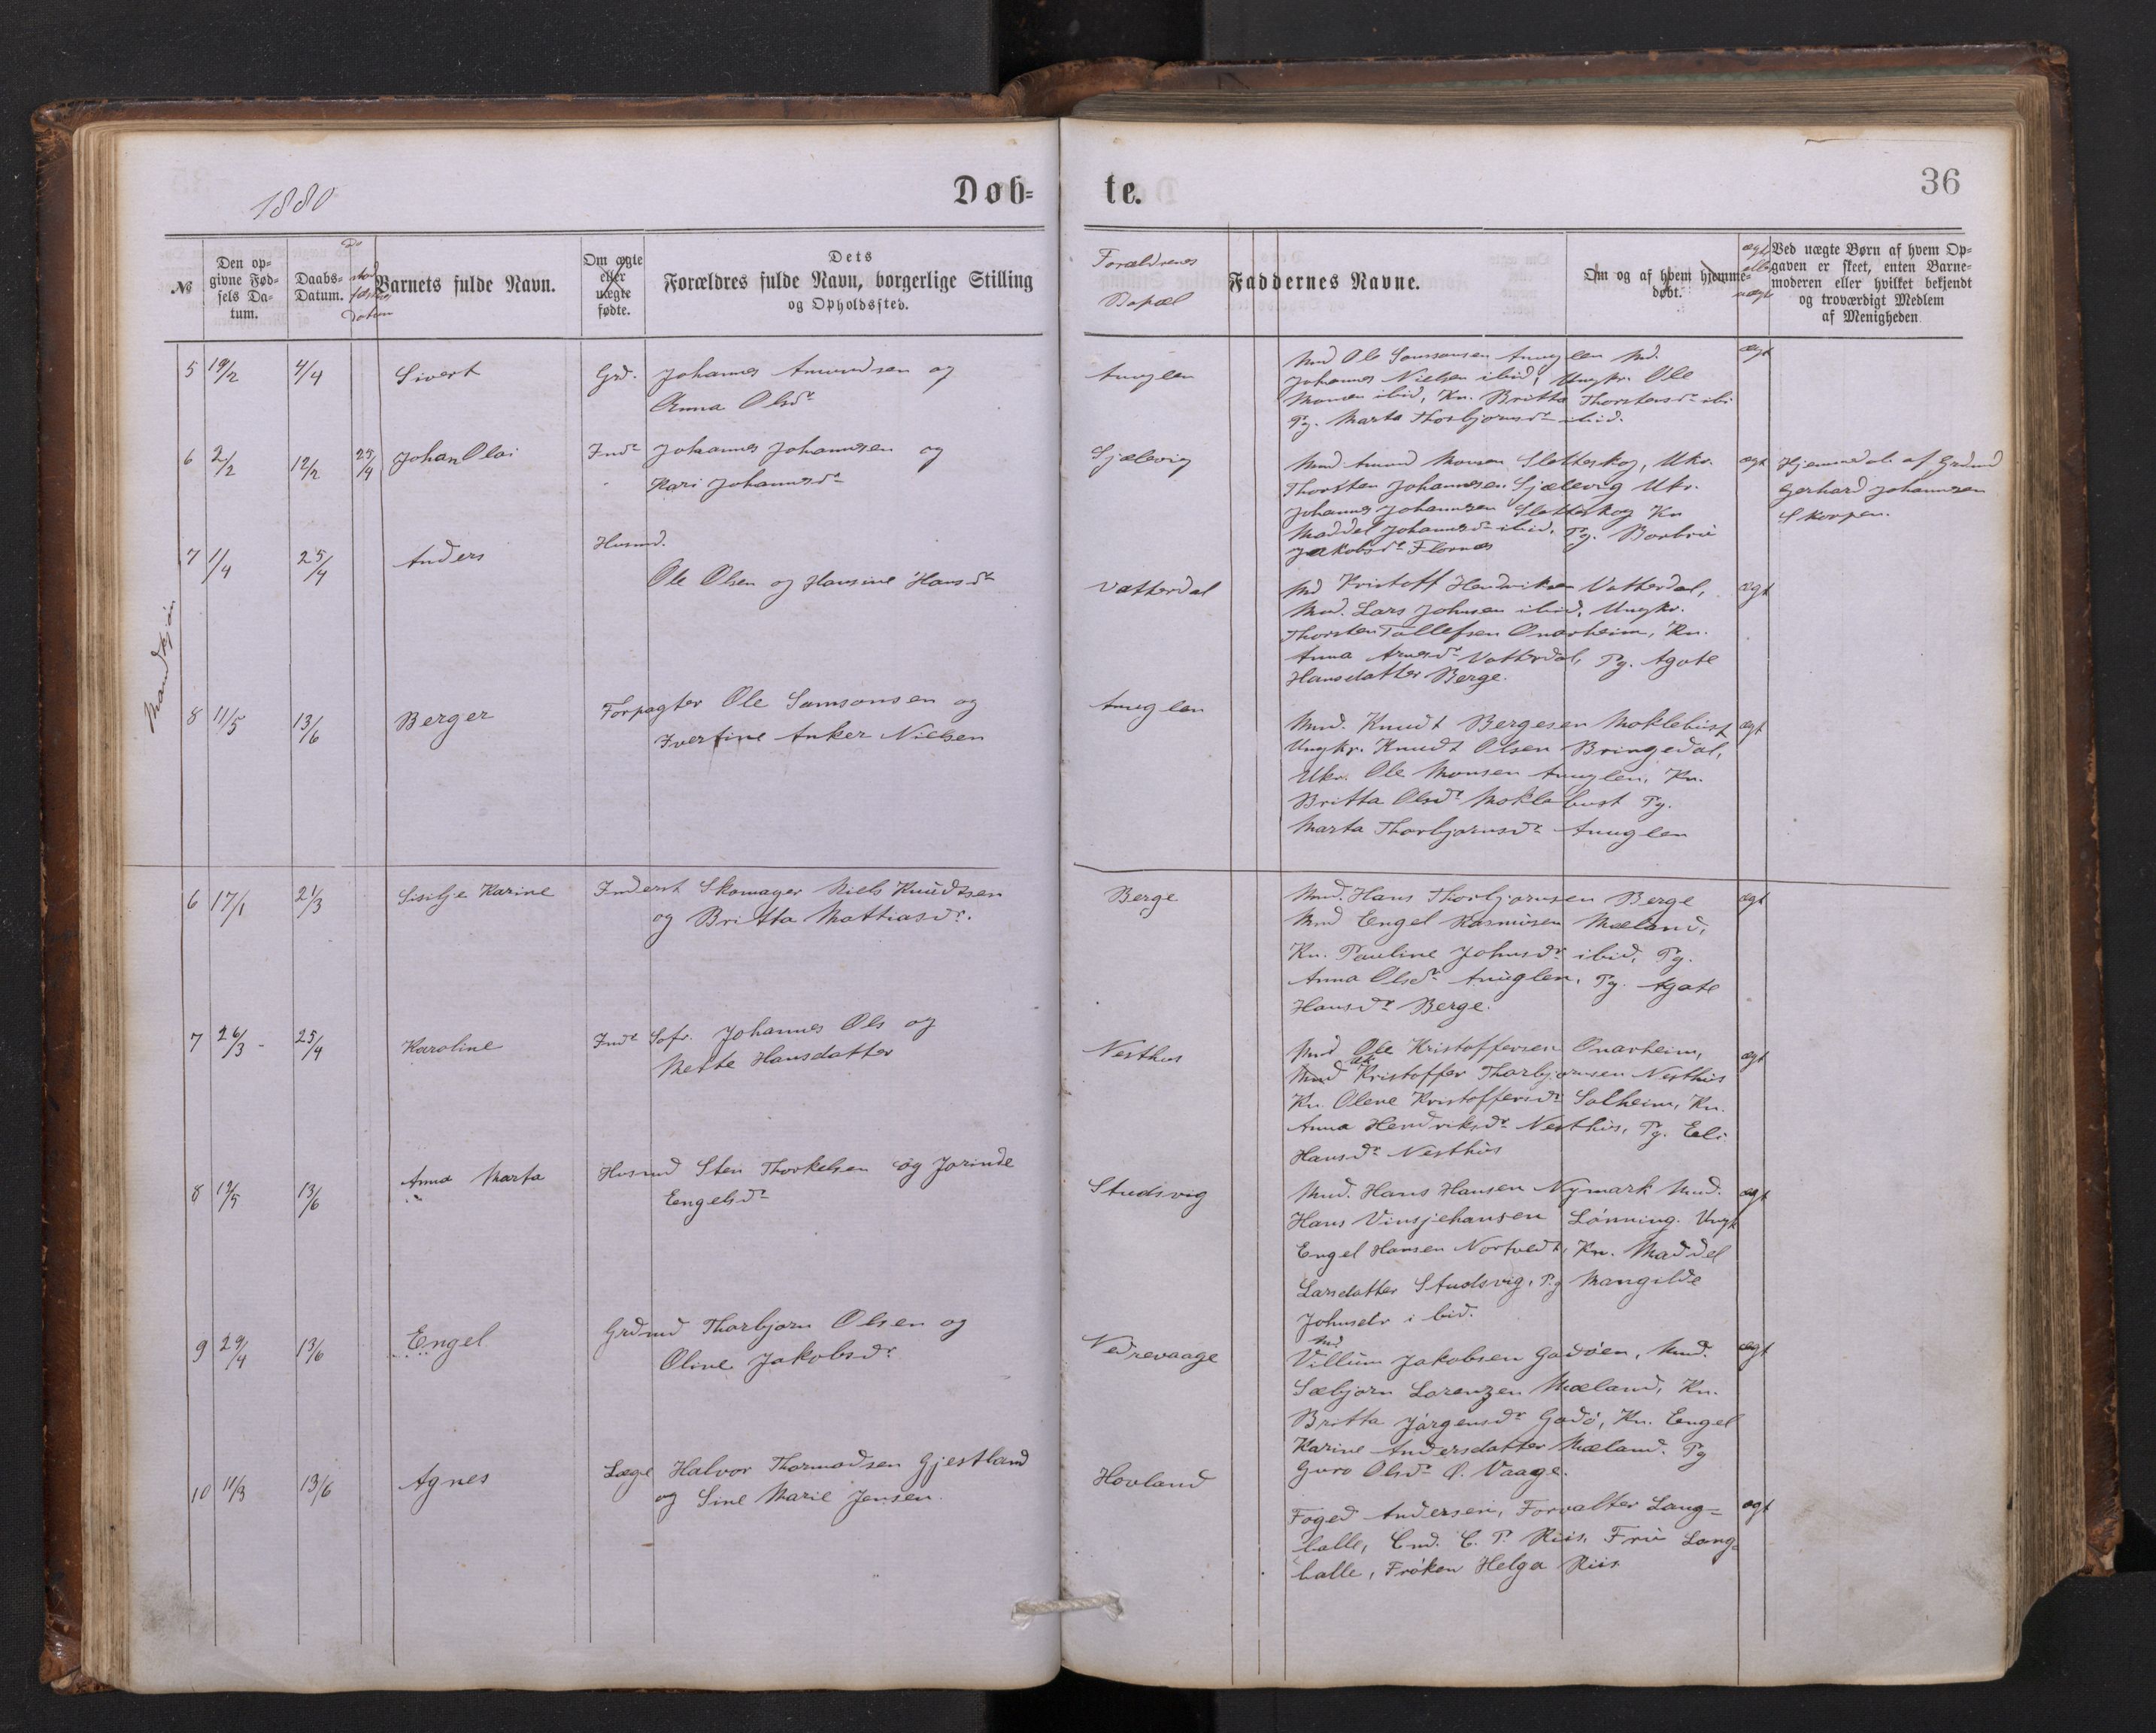 1880
Døb-
te.
36
№
Den op-
givne Fød-
sels Da-
tum.
Daabs-
Datum.
Barnets fulde Navn.
Om ægte
eller
uægte
fødte.
Dets
Forældres fulde Navn, borgerlige Stilling
og Opholdssted.
Forældrenes
Bopæl
Faddernes Navne.
Om og af hvem hjemme-
døbt.
ægte
eller
uægte
Ved uægte Børn af hvem Op-
gaven er skeet, enten Barne-
moderen eller hvilket bekjendt
og troværdigt Medlem
af Menigheden
Mandkjøn
5 19/2 4/4 Sivert Grd. Johannes Amundsen og
Anna Olsdr
Anuglen
Md Ole Samsonsen Anuglen Md.
Johannes Nielsen ibid, Ungkr. Ole
Monsen ibid, Kn. Britta Thorstensdr ibi
Pg. Marta Thorbjornsdr ibid.
ægt
6 2/2 12/2 25/4 Johan Olai Indr Johannes Johannesen og
Kari Johannesdr
Sjælevig
Mnd Amund Monsen Sletteskog, Ukr.
Thorsten Johannesen Sjælevig Ukr.
Johannes Johannesen Sletteskog Kn
Maddel Johannesdr ibid. Pg. Borbrü
Jakobsdr Flornes
ægt
Hjemmedøbt af Grdmd
Gerhard Johannesen
Skorpen.
7 1/4 25/4 Anders Husmd.
Ole Olsen og Hansine Hansdr
Vatterdal
Md Kristoff Hendriksen Vatterdal,
Md. Lars Johnsen ibid, Ungkr.
Thorsten Tollefsen Onarheim, Kn.
Anna Arnesdr Vatterdal, Pg. Agate
Hansdatter Berge.
ægt
8 11/5 13/6 Berger Forpagter Ole Samsonsen og
Ivertine Anker Nielsen
Anuglen
Mnd. Knudt Bergesen Moklebust
Ungkr. Knudt Olsen Bringedal,
Ukr. Ole Monsen Anuglen, Kn.
Britta Olsdr Moklebust Pg.
Marta Thorbjornsdr Anuglen
ægt
6 17/1 21/3 Sisilje Karine Inderst Skomager Niels Knüdtsen
og Britta Mattiasdr.
Berge
Mnd. Hans Thorbjornsen Berge
Mnd Engel Rasmüsen Mæland,
Kn. Pauline Johnsdr ibid, Pg.
Anna Olsdr Anüglen, Pg. Agate
Hansdr Berge.
ægt
7 26/3 25/4 Karoline Indr Sofr. Johannes Ols og
Mette Hansdatter
Nesthus
Mnd Ole Kristoffersen Onarheim,
Uk Kristoffer Thorbjornsen Nesthüs
Kn. Olene Kristoffersdr Solheim, Kn.
Anna Hendriksdr Nesthüs, Pg. Eli
Hansdr Nesthüs
ægt
8 12/5 13/6 Anna Marta Husmd Sten Thorkelsen og Jorinde
Engelsdr
Studsvig
Mnd. Hans Hansen Nymark Mnd.
Hans Vinsjehansen Lönning. Ungk
Engel Hansen Nortvedt, Kn. Maddel
Larsdatter Studsvig, Pg Mangilde
Johnsdr ibid.
ægt
9 29/4 13/6 Engel Grdmd Thorbjorn Olsen og
Oline Jakobsdr
Nedrevaage
Md
Villüm Jakobsen Godöen, Mnd.
Sæbjorn Lorenzen Mæland, Kn.
Britta Jörgensdr Godö, Kn. Engel
Karine Andersdatter Mæland. Pg
Guro Olsdr Ø. Vaage.
ægt
10 11/3 13/6 Agnes Læge Halvor Thormodsen Gjestland
og Sine Marie Jensen.
Hovland
Foged Andersen, Forvalter Lang-
balle, C. P. Riis, Früe Lang-
balle, Fröken Helga Riis
ægt